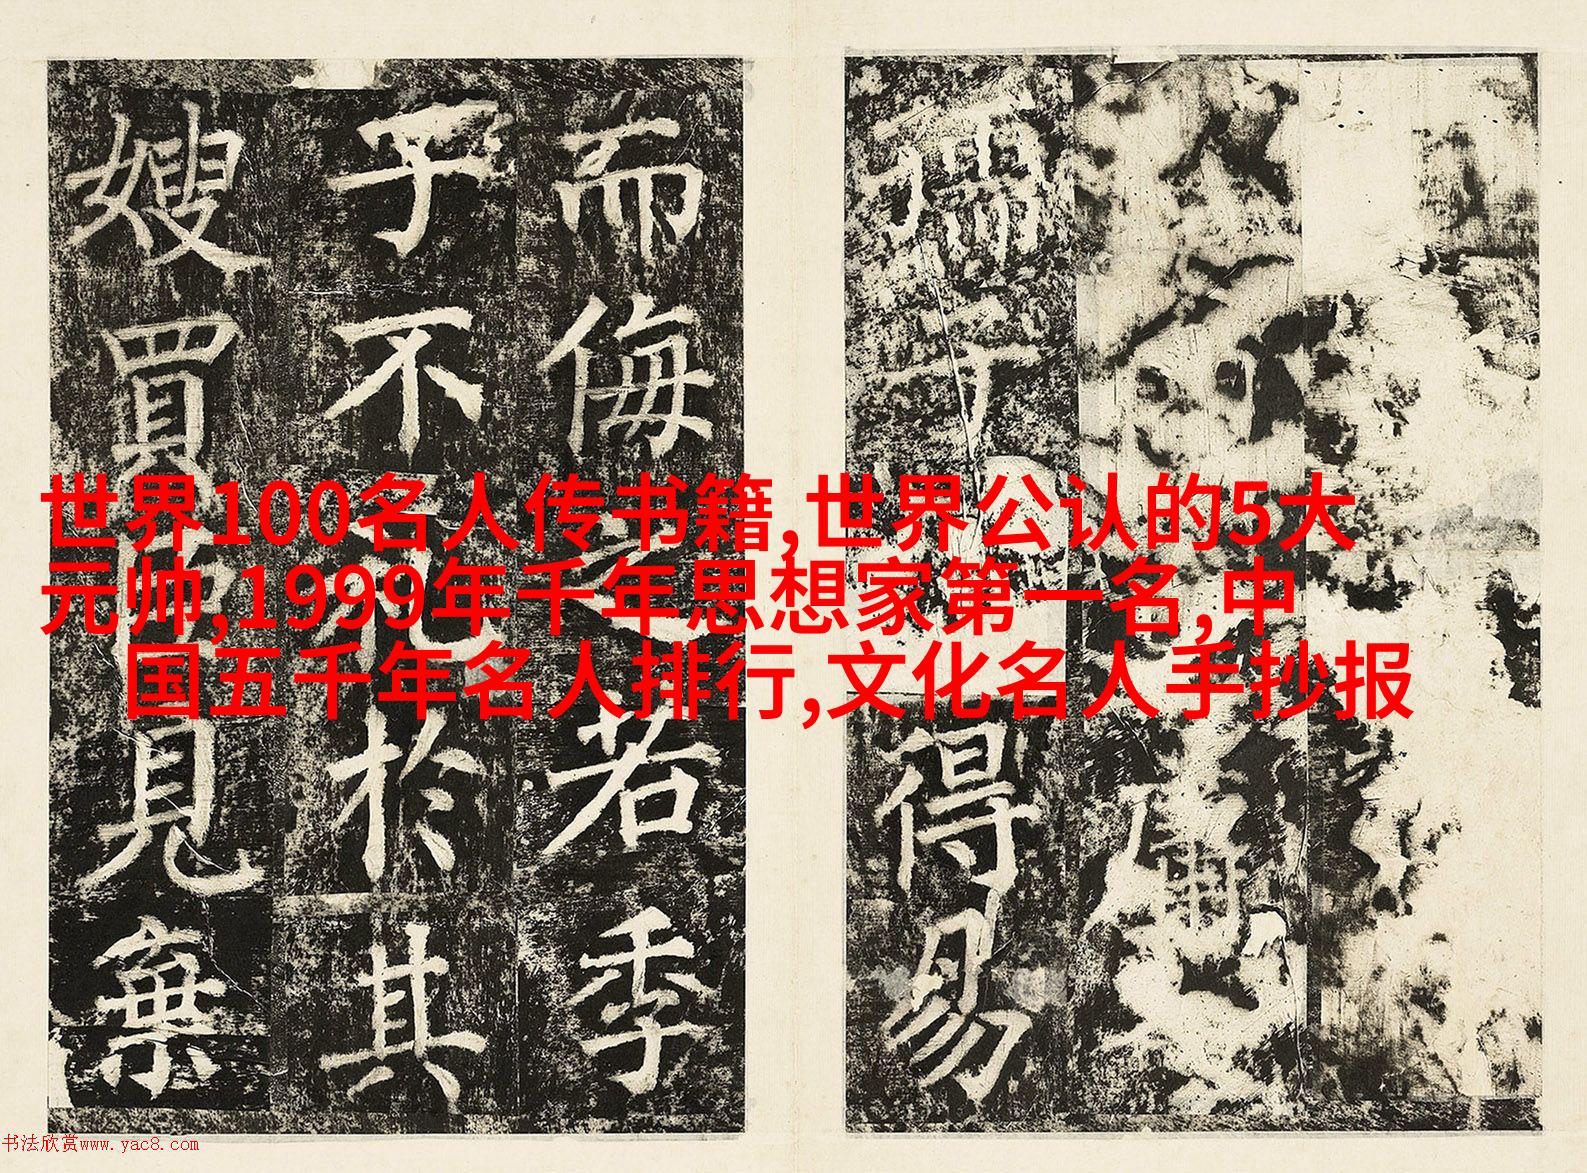 孺子得易
而侮之若季
子不於其
嫂買見棄
世界100名人传书籍,世界公认的5大
元帅,1999年千年思想家第一名,中
国五千年名人排行,文化名人手抄报
书法欣赏www.yac8.com